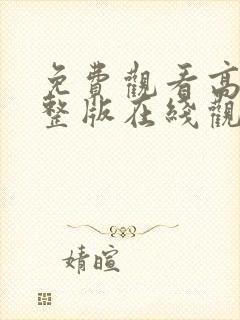 免費觀看高
整版在綫觀
婧暄